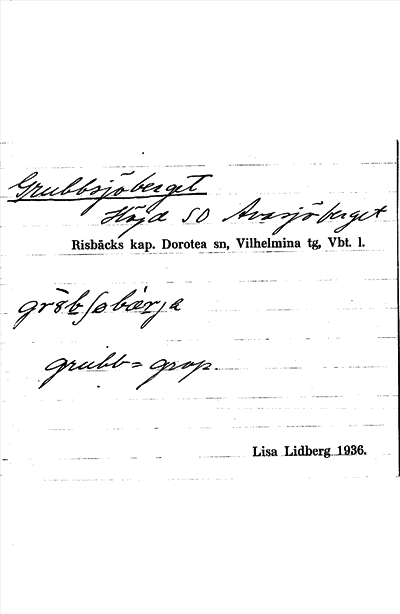 Grubbsjöberget
Höjd SO Avasjöberget
Risbäcks kap. Dorotea sn, Vilhelmina tg, Vbt. l.
grubb = grop.
Lisa Lidberg 1936.